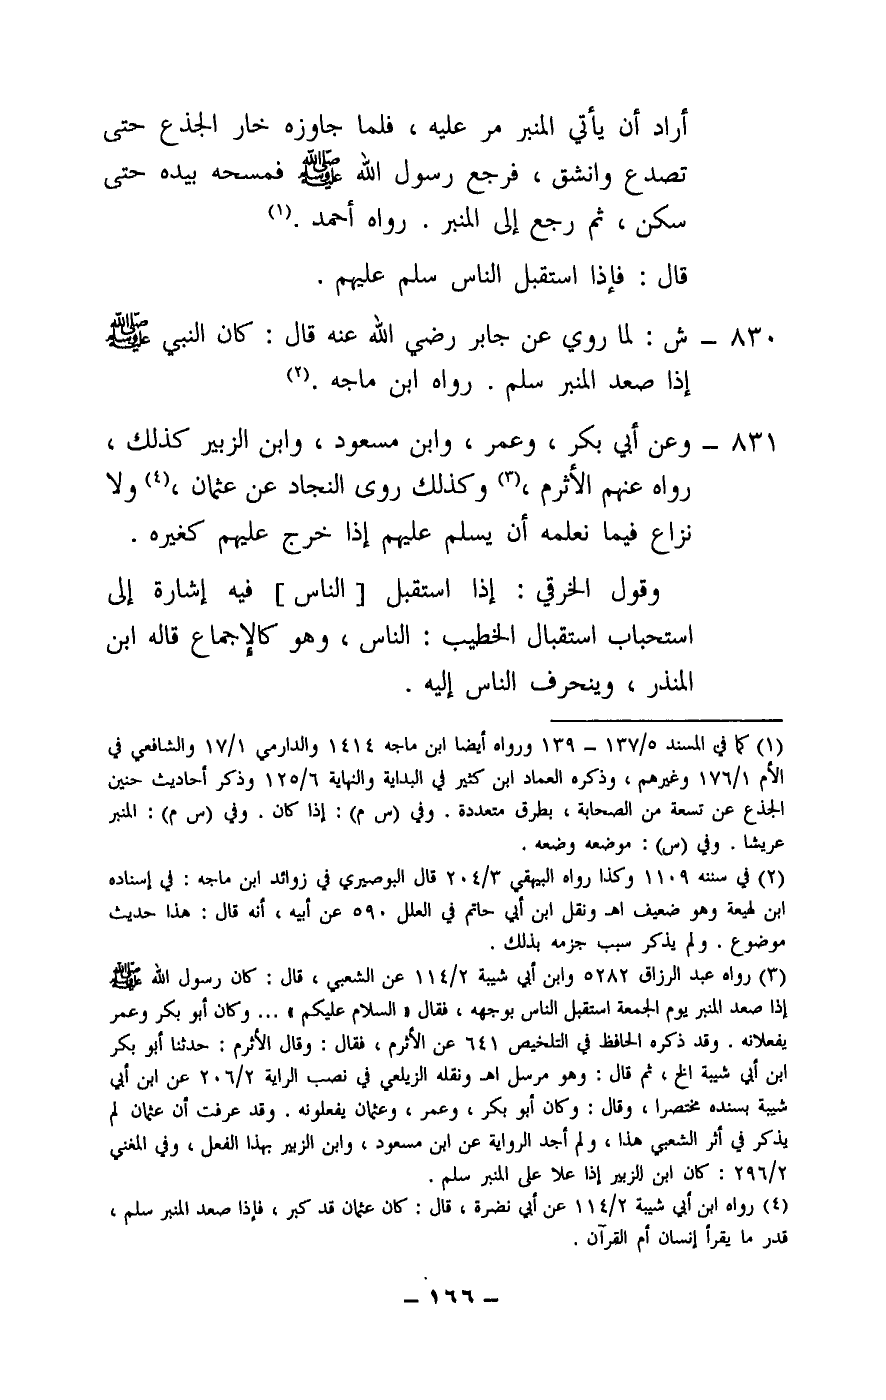 أراد أن يأتي المنبر مر عليه ، فلما جاوزه خار الجذع حتى
تصدع وانشق ، فرجع رسول الله ﷺ فمسحه بيده حتى
سكن ، ثم رجع إلى المنبر . رواه أحمد .(١)
قال : فإذا استقبل الناس سلم عليهم .
٨٣٠ – ش : لما روي عن جابر رضي الله عنه قال : كان النبي ﷺ
إذا صعد المنبر سلم . رواه ابن ماجه .(٢)
٨٣١ – وعن أبي بكر ، وعمر ، وابن مسعود ، وابن الزبير كذلك ،
رواه عنهم الأثرم ،(٣) وكذلك روى النجاد عن عثمان ،(٤) ولا
نزاع فيما نعلمه أن يسلم عليهم إذا خرج عليهم كغيره .
وقول الخرقي : إذا استقبل [ الناس ] فيه إشارة إلى
استحباب استقبال الخطيب : الناس ، وهو كالإجماع قاله ابن
المنذر ، وينحرف الناس إليه .
(١) كما في المسند ١٣٧/٥ – ١٣٩ ورواه أيضا ابن ماجه ١٤١٤ والدارمي ١٧/١ والشافعي في
الأم ١٧٦/١ وغيرهم ، وذكره العماد ابن كثير في البداية والنهاية ١٢٥/٦ وذكر أحاديث حنين
الجذع عن تسعة من الصحابة ، بطرق متعددة . وفي (س م) : إذا كان . وفي (س م) : المنبر
عريشا . وفي (س) : موضعه وضعه .
(٢) في سننه ١١٠٩ وكذا رواه البيهقي ٢٠٤/٣ قال البوصيري في زوائد ابن ماجه : في إسناده
ابن لهيعة وهو ضعيف اهـ ونقل ابن أبي حاتم في العلل ٥٩٠ عن أبيه ، أنه قال : هذا حديث
موضوع . ولم يذكر سبب جزمه بذلك .
(٣) رواه عبد الرزاق ٥٢٨٢ وابن أبي شيبة ١١٤/٢ عن الشعبي ، قال : كان رسول الله ﷺ
إذا صعد المنبر يوم الجمعة استقبل الناس بوجهه ، فقال « السلام عليكم » ... وكان أبو بكر وعمر
يفعلانه . وقد ذكره الحافظ في التلخيص ٦٤١ عن الأثرم ، فقال : وقال الأثرم : حدثنا أبو بكر
ابن أبي شيبة الخ ، ثم قال : وهو مرسل اهـ ونقله الزيلعي في نصب الراية ٢٠٦/٢ عن ابن أبي
شيبة بسنده مختصرا ، وقال : وكان أبو بكر ، وعمر ، وعثمان يفعلونه . وقد عرفت أن عثمان لم
يذكر في أثر الشعبي هذا ، ولم أجد الرواية عن ابن مسعود ، وابن الزبير بهذا الفعل ، وفي المغني
٢٩٦/٢ : كان ابن الزبير إذا علا على المنبر سلم .
(٤) رواه ابن أبي شيبة ١١٤/٢ عن أبي نضرة ، قال : كان عثمان قد كبر ، فإذا صعد المنبر سلم ،
قدر ما يقرأ إنسان أم القرآن .
– ١٦٦ –